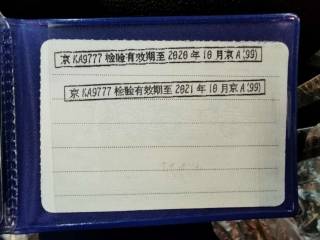 京KA9777检验有效期至2020年10月京A(99)
京KA9777检验有效期至2021年10月京A(99)